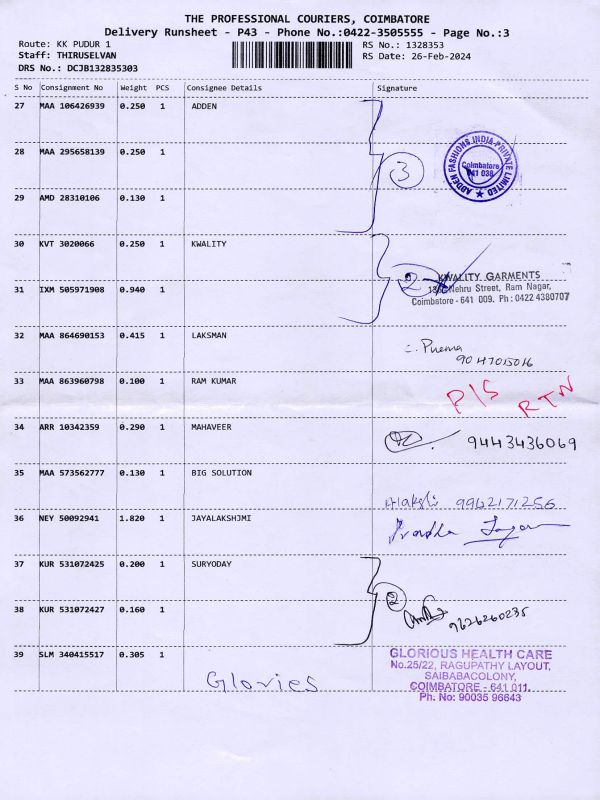 THE PROFESSIONAL COURIERS, COIMBATORE
Delivery Runsheet - P43 - Phone No.:0422-3505555 - Page No.:3
Route: KK PUDUR 1
RS No.: 1328353
Staff: THIRUSELVAN
RS Date: 26-Feb-2024
DRS No.: DCJB132835303
S No Consignment No Weight PCS Consignee Details Signature
27 MAA 106426939 0.250 1 ADDEN
28 MAA 295658139 0.250 1
3
ADDEN FASHIONS INDIA PRIVATE LIMITED
Coimbatore
641 038
29 AMD 28310106 0.130 1
30 KVT 3020066 0.250 1 KWALITY
2
KWALITY GARMENTS
Nehru Street, Ram Nagar,
Coimbatore - 641 009. Ph : 0422 4380707
31 IXM 505971908 0.940 1
32 MAA 864690153 0.415 1 LAKSMAN
33 MAA 863960798 0.100 1 RAM KUMAR
P/S RTN
34 ARR 10342359 0.290 1 MAHAVEER
9443436069
35 MAA 573562777 0.130 1 BIG SOLUTION
9962171256
36 NEY 50092941 1.820 1 JAYALAKSHJMI
37 KUR 531072425 0.200 1 SURYODAY
2
9626260235
38 KUR 531072427 0.160 1
39 SLM 340415517 0.305 1
Glories
GLORIOUS HEALTH CARE
No.25/22, RAGUPATHY LAYOUT,
SAIBABACOLONY,
COIMBATORE - 641 011.
Ph. No: 90035 96643